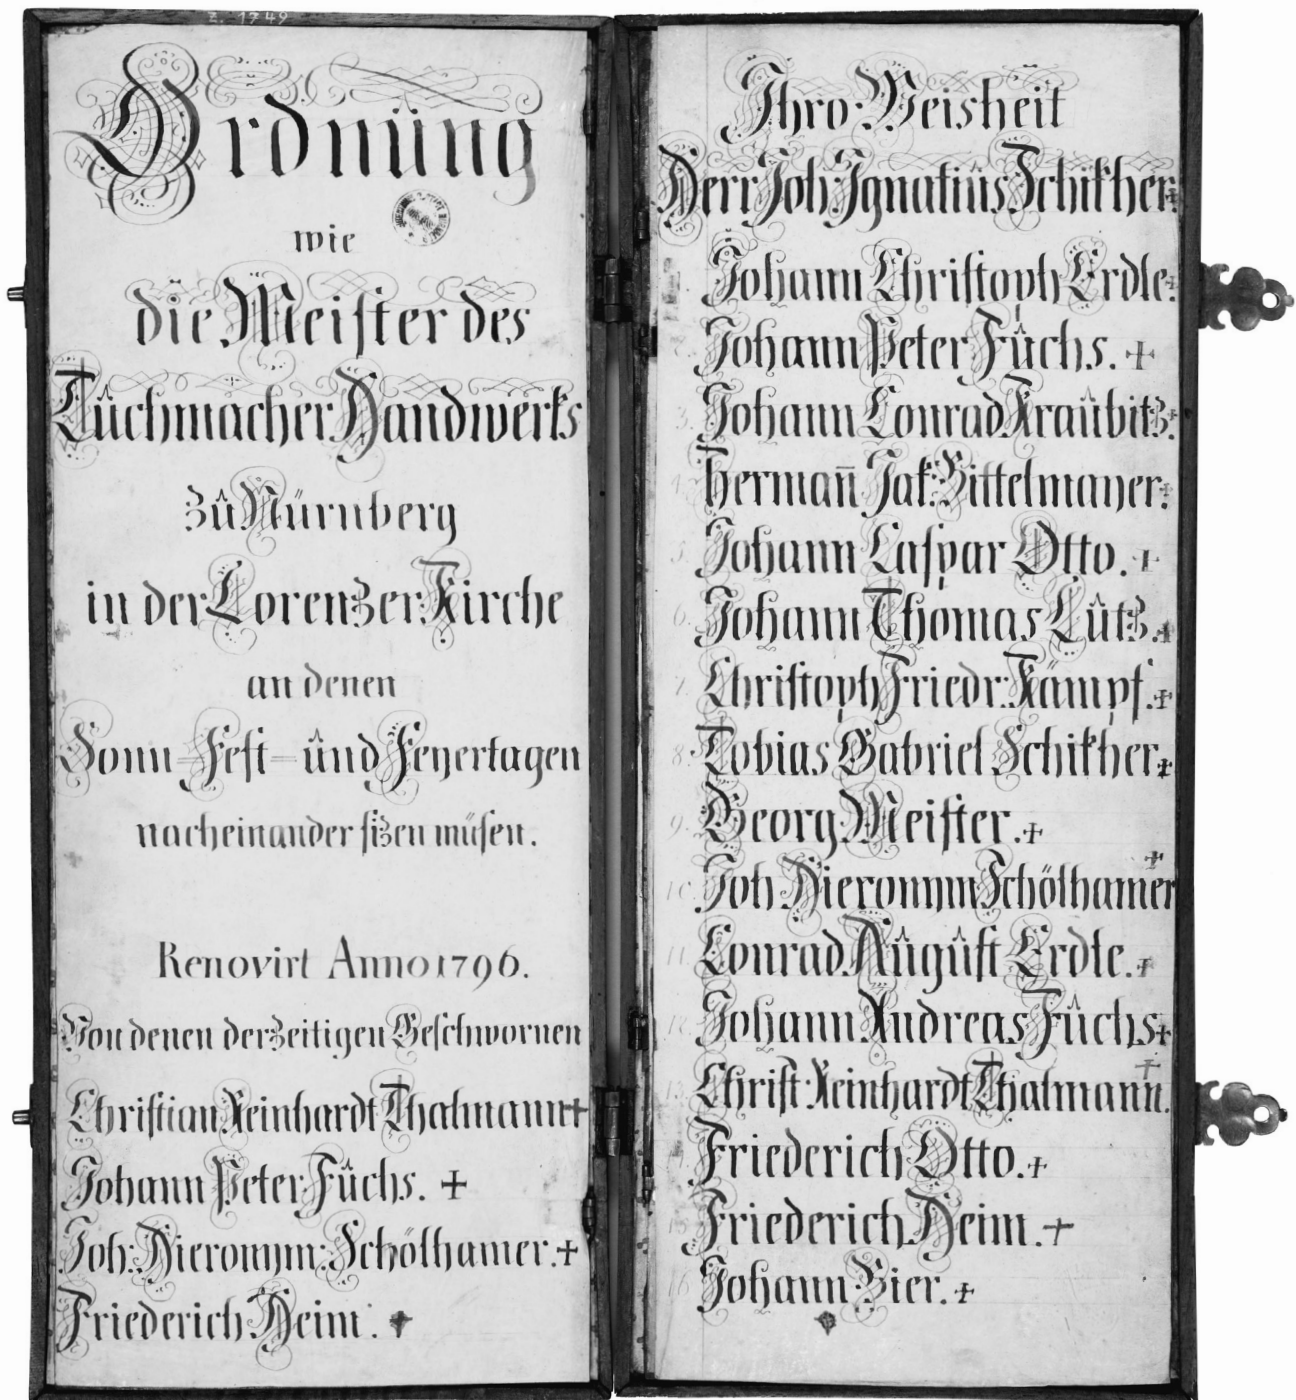 Z. 1749
Ordnüng
wie
die Meister des
Tûchmacher Handwerks
zû Nürnberg
in der Lorenzer Kirche
an denen
Sonn-Fest-ûnd Feyertagen
nacheinander sizen müsen.
Renovirt Anno 1796.
Von denen derzeitigen Geschwornen
Christian Reinhardt Thalmann +
Johann Peter Fûchs. +
Joh: Hieronym: Schölhamer. +
Friederich Heim. +
Ihro Weisheit
Herr Joh: Ignatiûs Schikher. +
Johann Christoph Erdle. +
2. Johann Peter Fûchs. +
3. Johann Conrad Kraûbitz. +
4. Hermañ Jak: Bittelmayer. +
5. Johann Caspar Otto. +
6. Johann Thomas Lûtz. +
7. Christoph Friedr: Kämpf. +
8. Tobias Gabriel Schikher +
9. Georg Meister. +
10. Joh Hieronym Schölhamer +
11. Conrad Aûgûst Erdle. +
12. Johann Andreas Fûchs +
13. Christ: Reinhardt Thalmann. +
Friederich Otto. +
15. Friederich Heim. +
16 Johann Bier. +